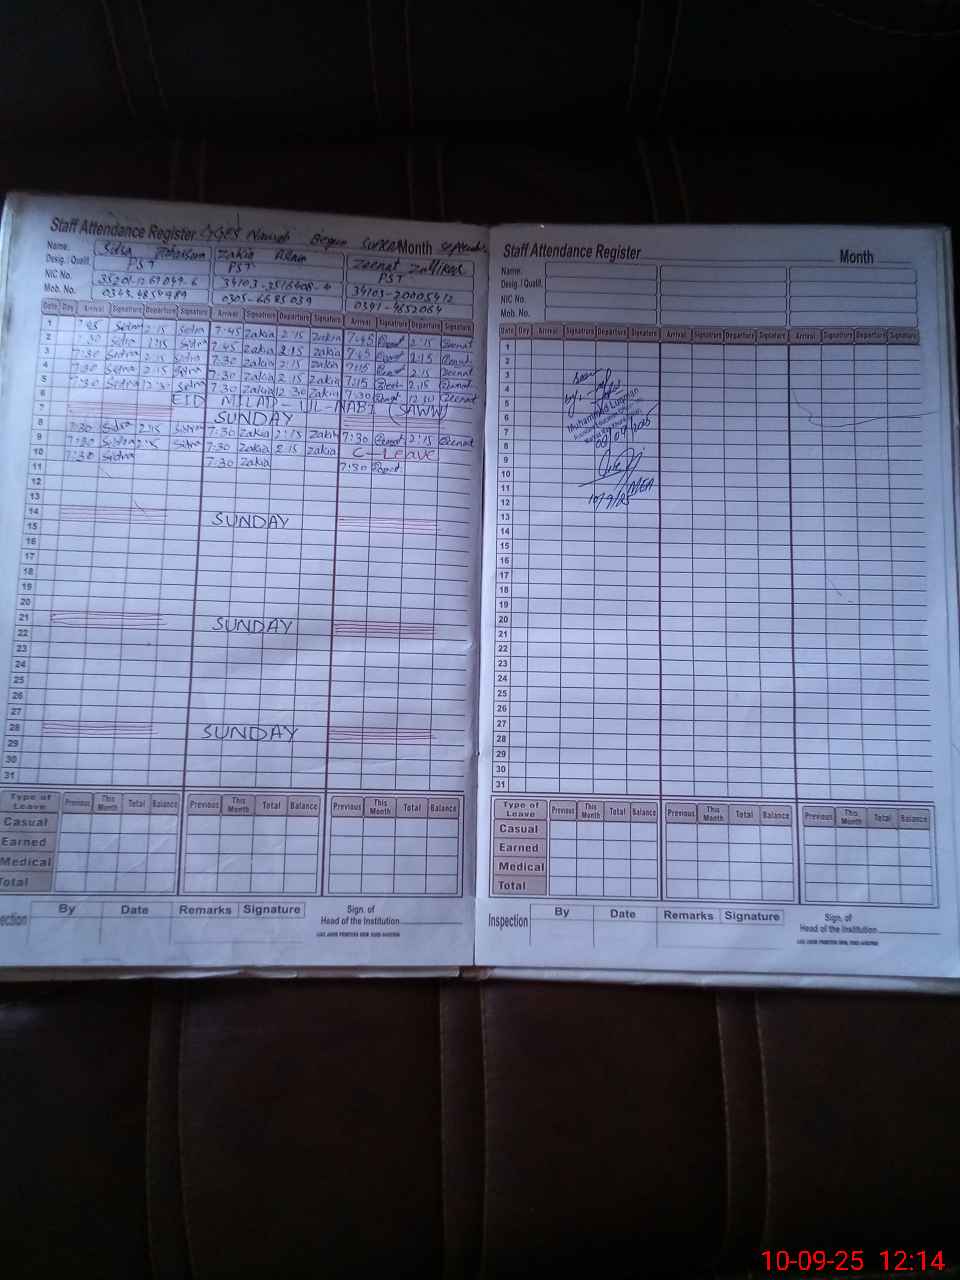 Staff Attendance Register Begum Month
Name. Sidra Zakia Alam Zeenat Zulfiqar
Desig. / Qualif. PST PST PST
NIC No.
Mob. No. 0305-6685039 0341-4852064
Date Day Arrival Signature Departure Signature Arrival Signature Departure Signature Arrival Signature Departure Signature
1 7:45 Sidra 2:15 Sidra 7:45 Zakia 2:15 Zakia 7:45 Zeenat 2:15 Zeenat
2 7:30 Sidra 2:15 Sidra 7:45 Zakia 2:15 Zakia 7:45 Zeenat 2:15 Zeenat
3 7:30 Sidra 2:15 Sidra 7:30 Zakia 2:15 Zakia 7:15 Zeenat 2:15 Zeenat
4 7:30 Sidra 2:15 Sidra 7:30 Zakia 2:15 Zakia 7:15 Zeenat 2:15 Zeenat
5 7:30 Sidra 12:30 Sidra 7:30 Zakia 12:30 Zakia 7:30 Zeenat 12:30 Zeenat
6 EID MILAD-UL-NABI (SAWW)
7 SUNDAY
8 7:30 Sidra 2:15 Sidra 7:30 Zakia 2:15 Zakia 7:30 Zeenat 2:15 Zeenat
9 7:30 Sidra 2:15 Sidra 7:30 Zakia 2:15 Zakia C-Leave
10 7:30 Sidra 7:30 Zakia 7:30 Zeenat
11
12
13
14 SUNDAY
15
16
17
18
19
20
21 SUNDAY
22
23
24
25
26
27
28 SUNDAY
29
30
31
Type of Leave Previous This Month Total Balance Previous This Month Total Balance Previous This Month Total Balance
Casual
Earned
Medical
Total
By Date Remarks Signature Sign. of
Head of the Institution
Staff Attendance Register Month
Name.
Desig. / Qualif.
NIC No.
Mob. No.
Date Day Arrival Signature Departure Signature Arrival Signature Departure Signature Arrival Signature Departure Signature
1
2
3
4
5
6
7
8
9
10
11
12
13
14
15
16
17
18
19
20
21
22
23
24
25
26
27
28
29
30
31
Seen
by
Muhammad Luqman
09/09/2025
MEA
10/9/25
Type of Leave Previous This Month Total Balance Previous This Month Total Balance Previous This Month Total Balance
Casual
Earned
Medical
Total
Inspection By Date Remarks Signature Sign. of
Head of the Institution
10-09-25 12:14